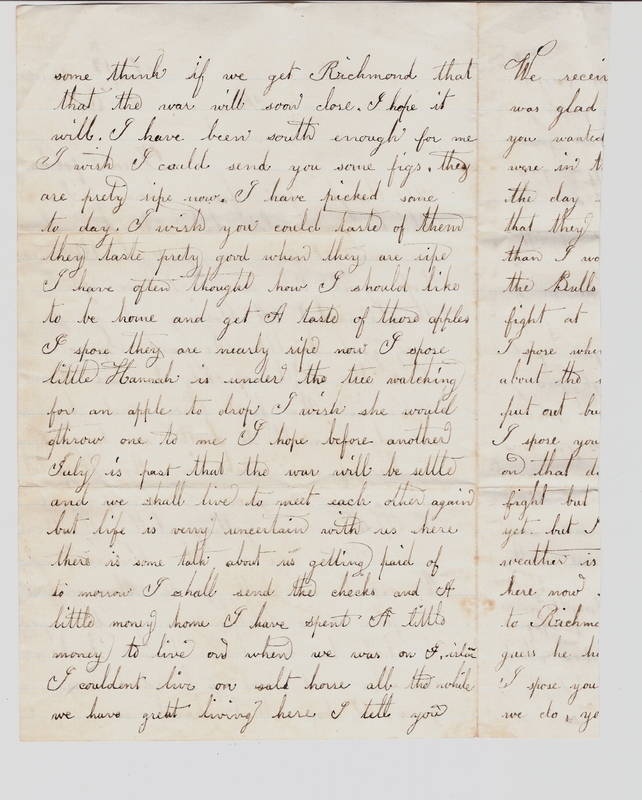 some think if we get Richmond that
that the war will soon close. I hope it
will. I have been south enough for me
I wish I could send you some figs. they
are prety ripe now. I have picked some
to day. I wish you could taste of them
they taste prety good when they are ripe
I have often thought how I should like
to be home and get A taste of those apples
I spose they are nearly ripe now I spose
little Hannah is under the tree watching
for an apple to drop I wish she would
throw one to me I hope before another
July is past that the war will be settle
and we shall live to meet each other again
but life is verry uncertain with us here
there is some talk about us getting paid of
to morrow I shall send the checks and A
little money home I have spent A little
money to live on when we was on
I couldent live on salt horse all the while
we have great living here I tell you
We
was glad
you wanted
were in
the day
that they
than I
the Bulls
fight at
I spose
about the
put out
I spose you
on that
fight but
yet. but I
weather is
here now
to
guess he
I spose you
we do,